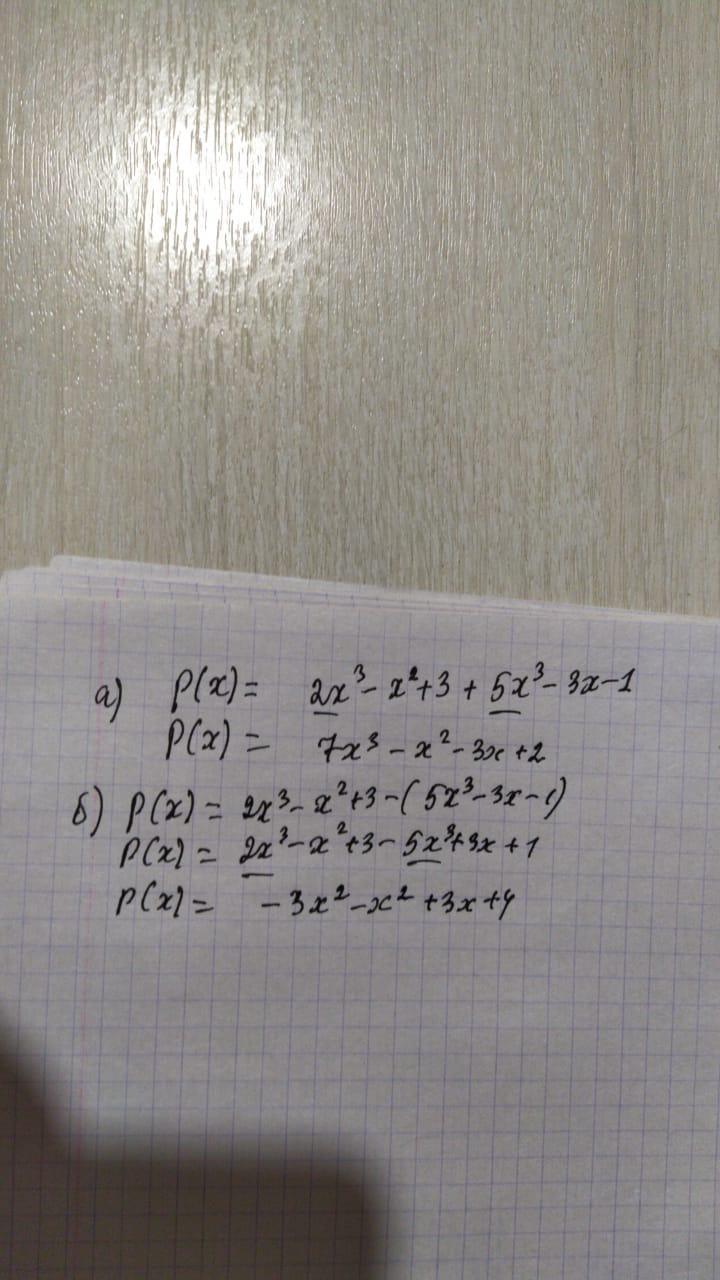 а) P(x) = 2x³ - x² + 3 + 5x³ - 3x - 1
P(x) = 7x³ - x² - 3x + 2
б) P(x) = 2x³ - x² + 3 - (5x³ - 3x - 1)
P(x) = 2x³ - x² + 3 - 5x³ + 3x + 1
P(x) = - 3x² - x² + 3x + 4